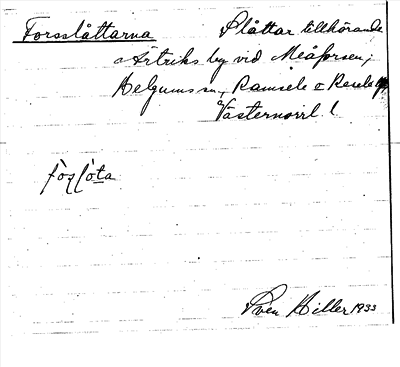 Forsslåttarna Slåttar tillhörande
Artriks by vid Meåforsen,
Helgums sn, Ramsele o Resele
Västernorrl. l
Sven Hiller 1933